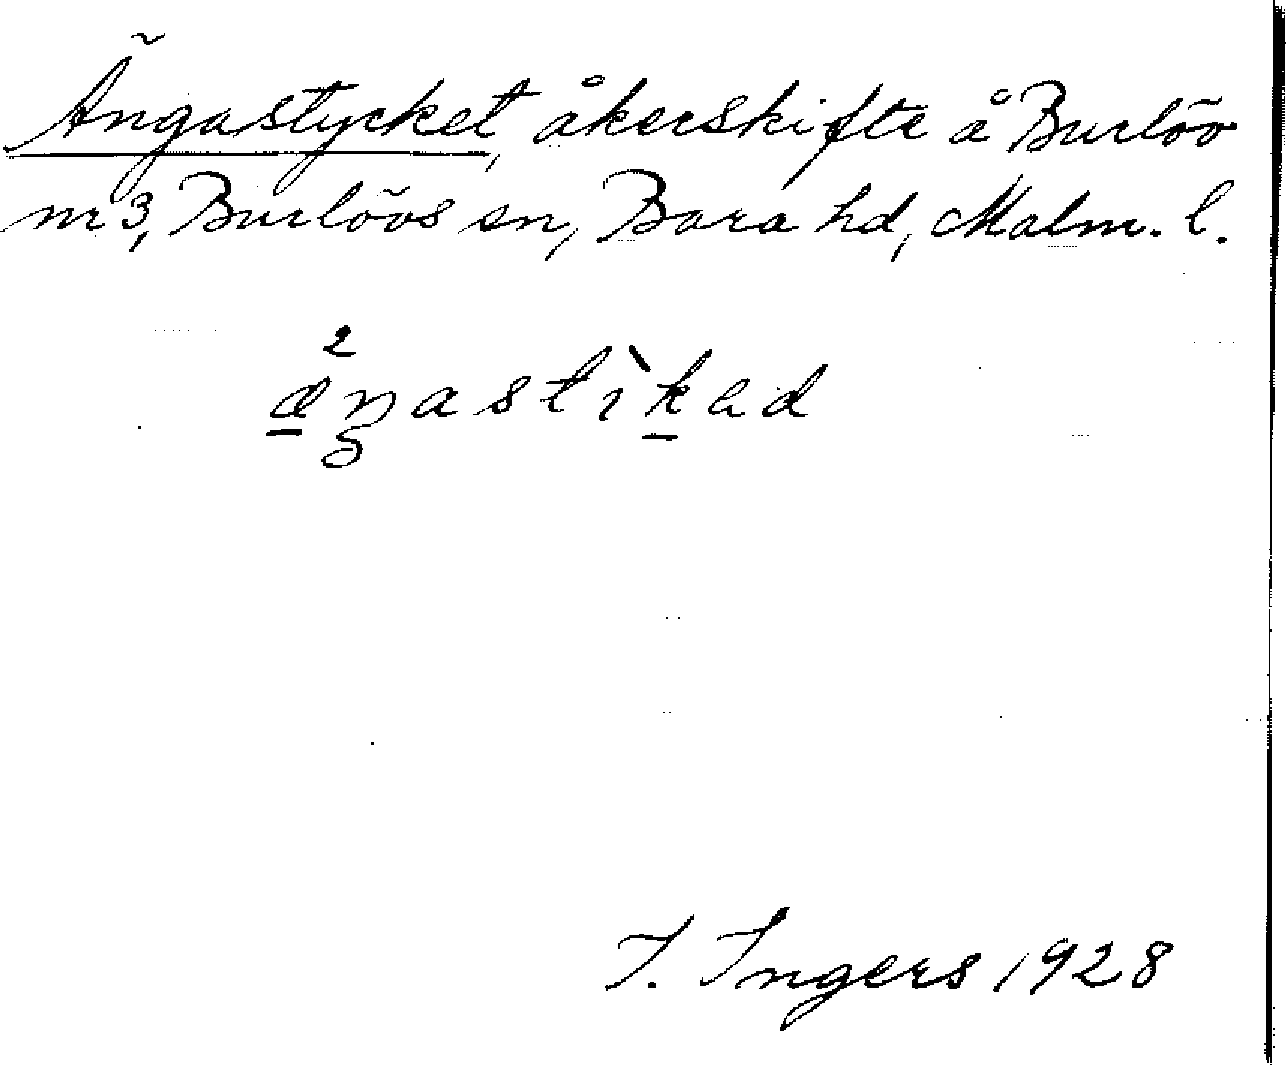 Ängastycket, åkerskifte å Burlöv
nr 3, Burlövs sn, Bara hd, Malm. l.
²æŋastìkad
I. Ingers 1928